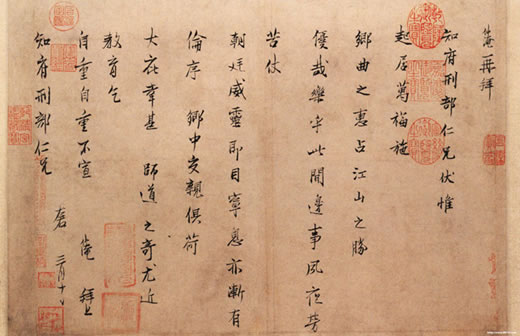 淹再拜
知府刑部仁兄伏惟
起居萬福施
鄉曲之惠占江山之勝
優哉樂乎此間邊事夙夜勞
苦仗
朝廷威靈即目寧息亦漸有
倫序鄉中交親俱荷
大庇幸甚師道之奇尤近
教育乞
自重自重不宣 淹拜上
知府刑部仁兄
三月十日